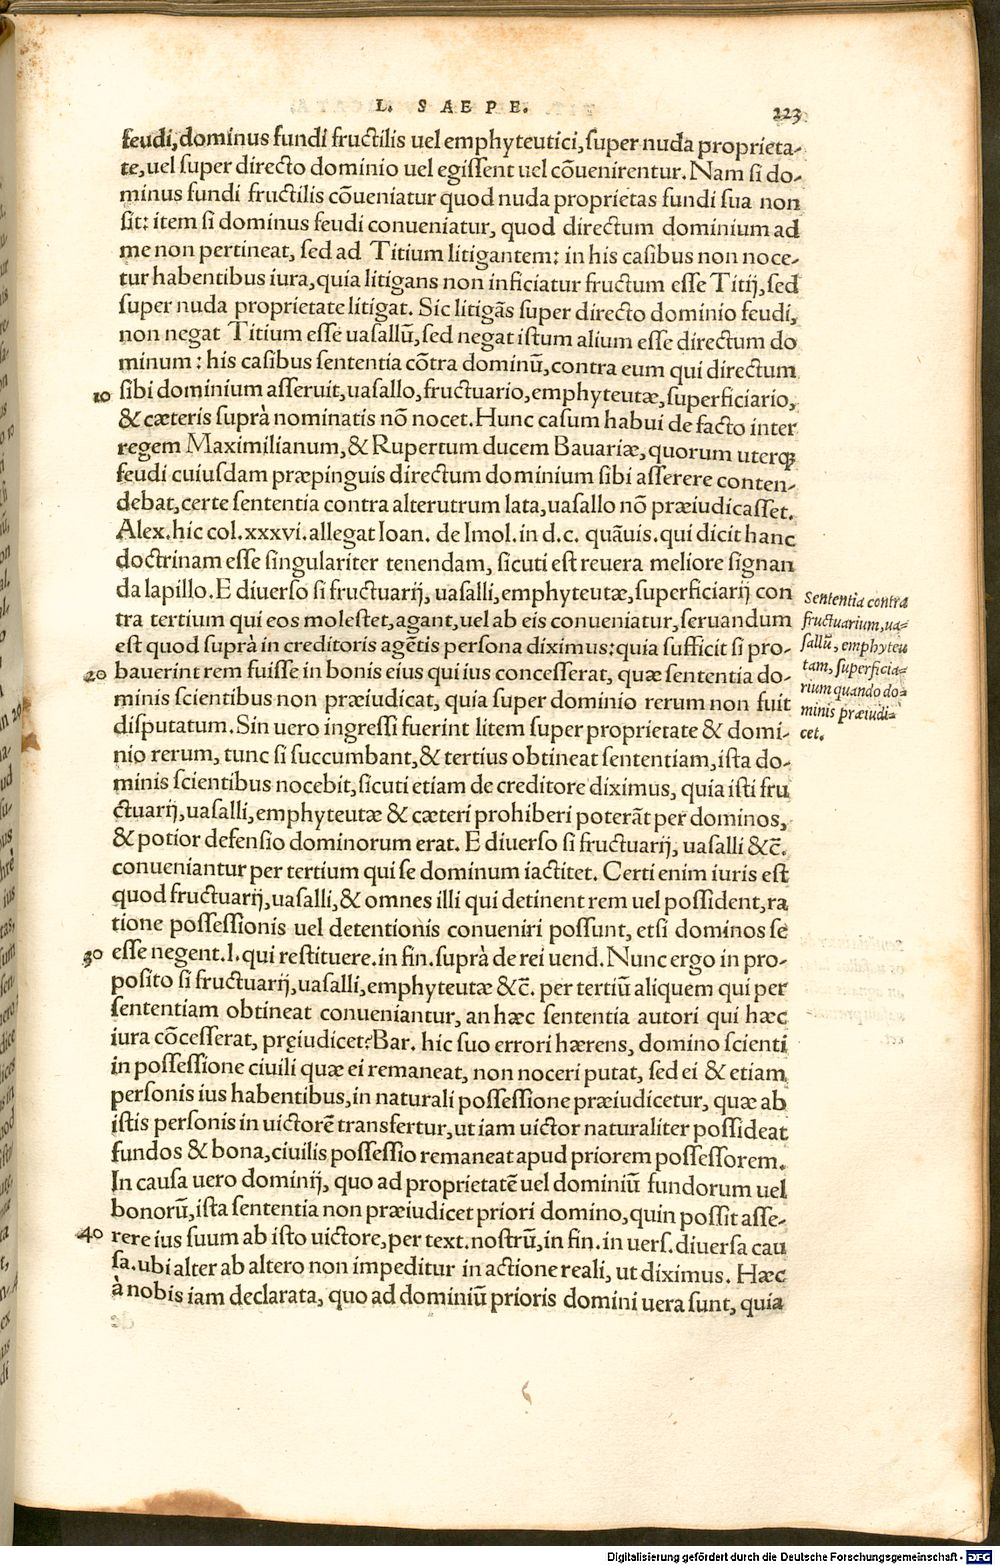 L. SAEPE.
223
feudi, dominus fundi fructilis uel emphyteutici, super nuda proprieta-
te, uel super directo dominio uel egissent uel cōuenirentur. Nam si do-
minus fundi fructilis cōueniatur quod nuda proprietas fundi sua non
sit: item si dominus feudi conueniatur, quod directum dominium ad
me non pertineat, sed ad Titium litigantem: in his casibus non noce-
tur habentibus iura, quia litigans non inficiatur fructum esse Titij, sed
super nuda proprietate litigat. Sic litigãs super directo dominio feudi,
non negat Titium esse uasallũ, sed negat istum alium esse directum do
minum: his casibus sententia cōtra dominũ, contra eum qui directum
10 sibi dominium asseruit, uasallo, fructuario, emphyteutæ, superficiario,
& cæteris suprà nominatis nō nocet. Hunc casum habui de facto inter
regem Maximilianum, & Rupertum ducem Bauariæ, quorum uterq;
feudi cuiusdam præpinguis directum dominium sibi asserere conten-
debat, certe sententia contra alterutrum lata, uasallo nō præiudicasset.
Alex. hic col. xxxvi. allegat Ioan. de Imol. in d. c. quãuis. qui dicit hanc
doctrinam esse singulariter tenendam, sicuti est reuera meliore signan
da lapillo. E diuerso si fructuarij, uasalli, emphyteutæ, superficiarij con
tra tertium qui eos molestet, agant, uel ab eis conueniatur, seruandum
est quod suprà in creditoris agẽtis persona diximus: quia sufficit si pro-
20 bauerint rem fuisse in bonis eius qui ius concesserat, quæ sententia do-
minis scientibus non præiudicat, quia super dominio rerum non fuit
disputatum. Sin uero ingressi fuerint litem super proprietate & domi-
nio rerum, tunc si succumbant, & tertius obtineat sententiam, ista do-
minis scientibus nocebit, sicuti etiam de creditore diximus, quia isti fru
ctuarij, uasalli, emphyteutæ & cæteri prohiberi poterãt per dominos,
& potior defensio dominorum erat. E diuerso si fructuarij, uasalli &c̄.
conueniantur per tertium qui se dominum iactitet. Certi enim iuris est
quod fructuarij, uasalli, & omnes illi qui detinent rem uel possident, ra
tione possessionis uel detentionis conueniri possunt, etsi dominos se
30 esse negent. l. qui restituere. in fin. suprà de rei uend. Nunc ergo in pro-
posito si fructuarij, uasalli, emphyteutæ &c̄. per tertiũ aliquem qui per
sententiam obtineat conueniantur, an hæc sententia autori qui hæc
iura cōcesserat, pręiudicet? Bar. hic suo errori hærens, domino scienti
in possessione ciuili quæ ei remaneat, non noceri putat, sed ei & etiam
personis ius habentibus, in naturali possessione præiudicetur, quæ ab
istis personis in uictorẽ transfertur, ut iam uictor naturaliter possideat
fundos & bona, ciuilis possessio remaneat apud priorem possessorem.
In causa uero dominij, quo ad proprietatẽ uel dominiũ fundorum uel
bonorũ, ista sententia non præiudicet priori domino, quin possit asse-
40 rere ius suum ab isto uictore, per text. nostrũ, in fin. in uers. diuersa cau
sa. ubi alter ab altero non impeditur in actione reali, ut diximus. Hæc
à nobis iam declarata, quo ad dominiũ prioris domini uera sunt, quia
Sententia contra
fructuarium, ua-
sallũ, emphyteu
tam, superficia-
rium quando do-
minis præiudi-
cet.
Digitalisierung gefördert durch die Deutsche Forschungsgemeinschaft - DFG